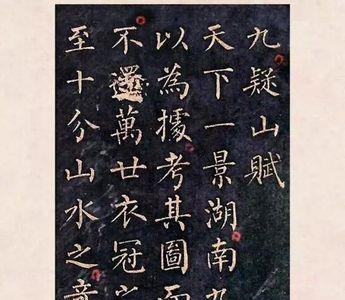 九疑山賦
天下一景湖南九
以為據考其圖而
不還萬廿衣冠之
至十分山水之